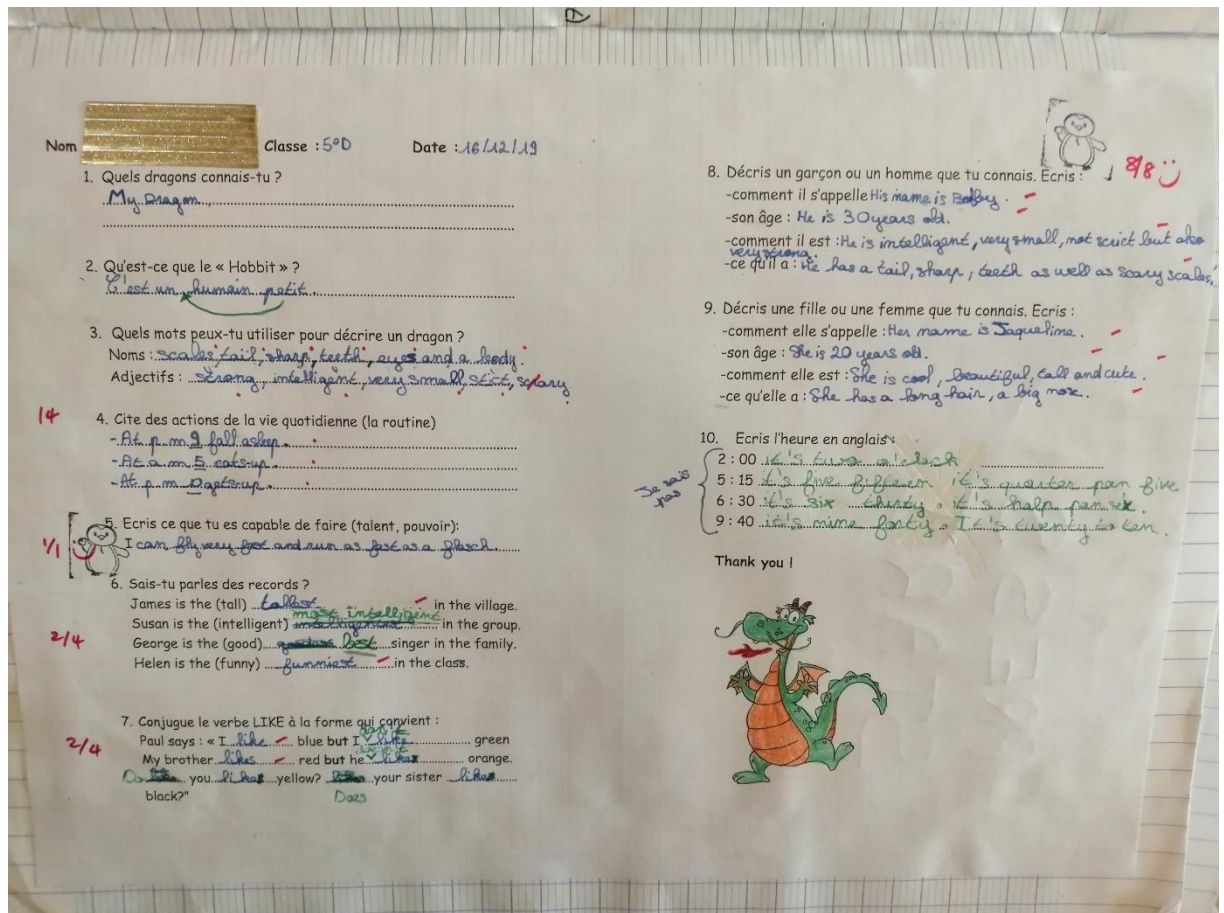 Nom Classe : 5°D Date : 16/12/19
1. Quels dragons connais-tu ?
My Dragon
2. Qu'est-ce que le « Hobbit » ?
C'est un humain petit.
3. Quels mots peux-tu utiliser pour décrire un dragon ?
Noms : scales, tail, sharp, teeth, eyes and a body.
Adjectifs : strong, intelligent, very small, stict, scary
14
4. Cite des actions de la vie quotidienne (la routine)
- At p.m 9 fall asleep.
- At a.m 5 eats-up.
- At p.m gets-up.
5. Ecris ce que tu es capable de faire (talent, pouvoir):
1/1
I can fly very fast and run as fast as a flasch.
6. Sais-tu parles des records ?
James is the (tall) tallest in the village.
most intelligent
Susan is the (intelligent) in the group.
2/4
George is the (good) best singer in the family.
Helen is the (funny) funniest in the class.
7. Conjugue le verbe LIKE à la forme qui convient :
don't
Paul says : « I like blue but I like green
2/4
doesn't
My brother likes red but he like orange.
Do you like yellow? your sister like
black?"
Does
8/8
8. Décris un garçon ou un homme que tu connais. Ecris :
-comment il s'appelle His name is
-son âge : He is 30 years old.
-comment il est : He is intelligent, very small, not scrict but also
very strong.
-ce qu'il a : He has a tail, sharp, teeth as well as scary scales,
9. Décris une fille ou une femme que tu connais. Ecris :
-comment elle s'appelle : Her name is Jaqueline.
-son âge : She is 20 years old.
-comment elle est : She is cool, beautiful, tall and cute.
-ce qu'elle a : She has a long hair, a big nose.
10. Ecris l'heure en anglais :
Je sais
pas
2 : 00 it's two o'clock
5 : 15 it's five fifteen it's quarter pan five
6 : 30 it's six thirty. it's halp pan six.
9 : 40 it's nine forty. It's twenty to ten.
Thank you !